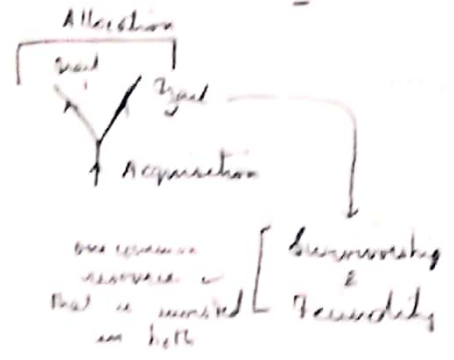 Allocation
Trait
Trait
Acquisition
one common
resource
that is invested
in both
Survivorship
&
Fecundity